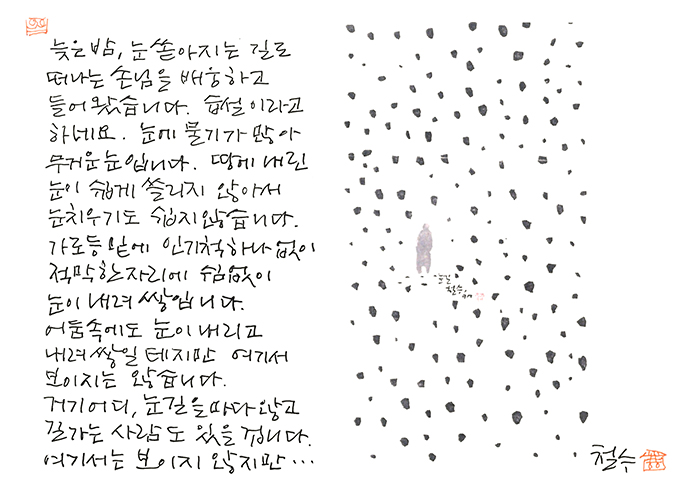 늦은 밤, 눈 쏟아지는 길로
떠나는 손님을 배웅하고
들어왔습니다. 습설이라고
하네요. 눈에 물기가 많아
무거운 눈입니다. 땅에 내린
눈이 쉽게 쓸리지 않아서
눈치우기도 쉽지 않습니다.
가로등 밑에 인기척 하나 없이
적막한 자리에 쉼없이
눈이 내려 쌓입니다.
어둠속에도 눈이 내리고
내려 쌓일 테지만 여기서
보이지는 않습니다.
거기 어디, 눈길을 마다 않고
길가는 사람도 있을 겁니다.
여기서는 보이지 않지만…
눈길
철수
철수